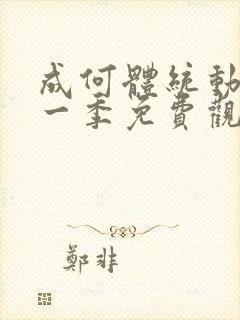 成何體統動
一季免費觀
鄭非